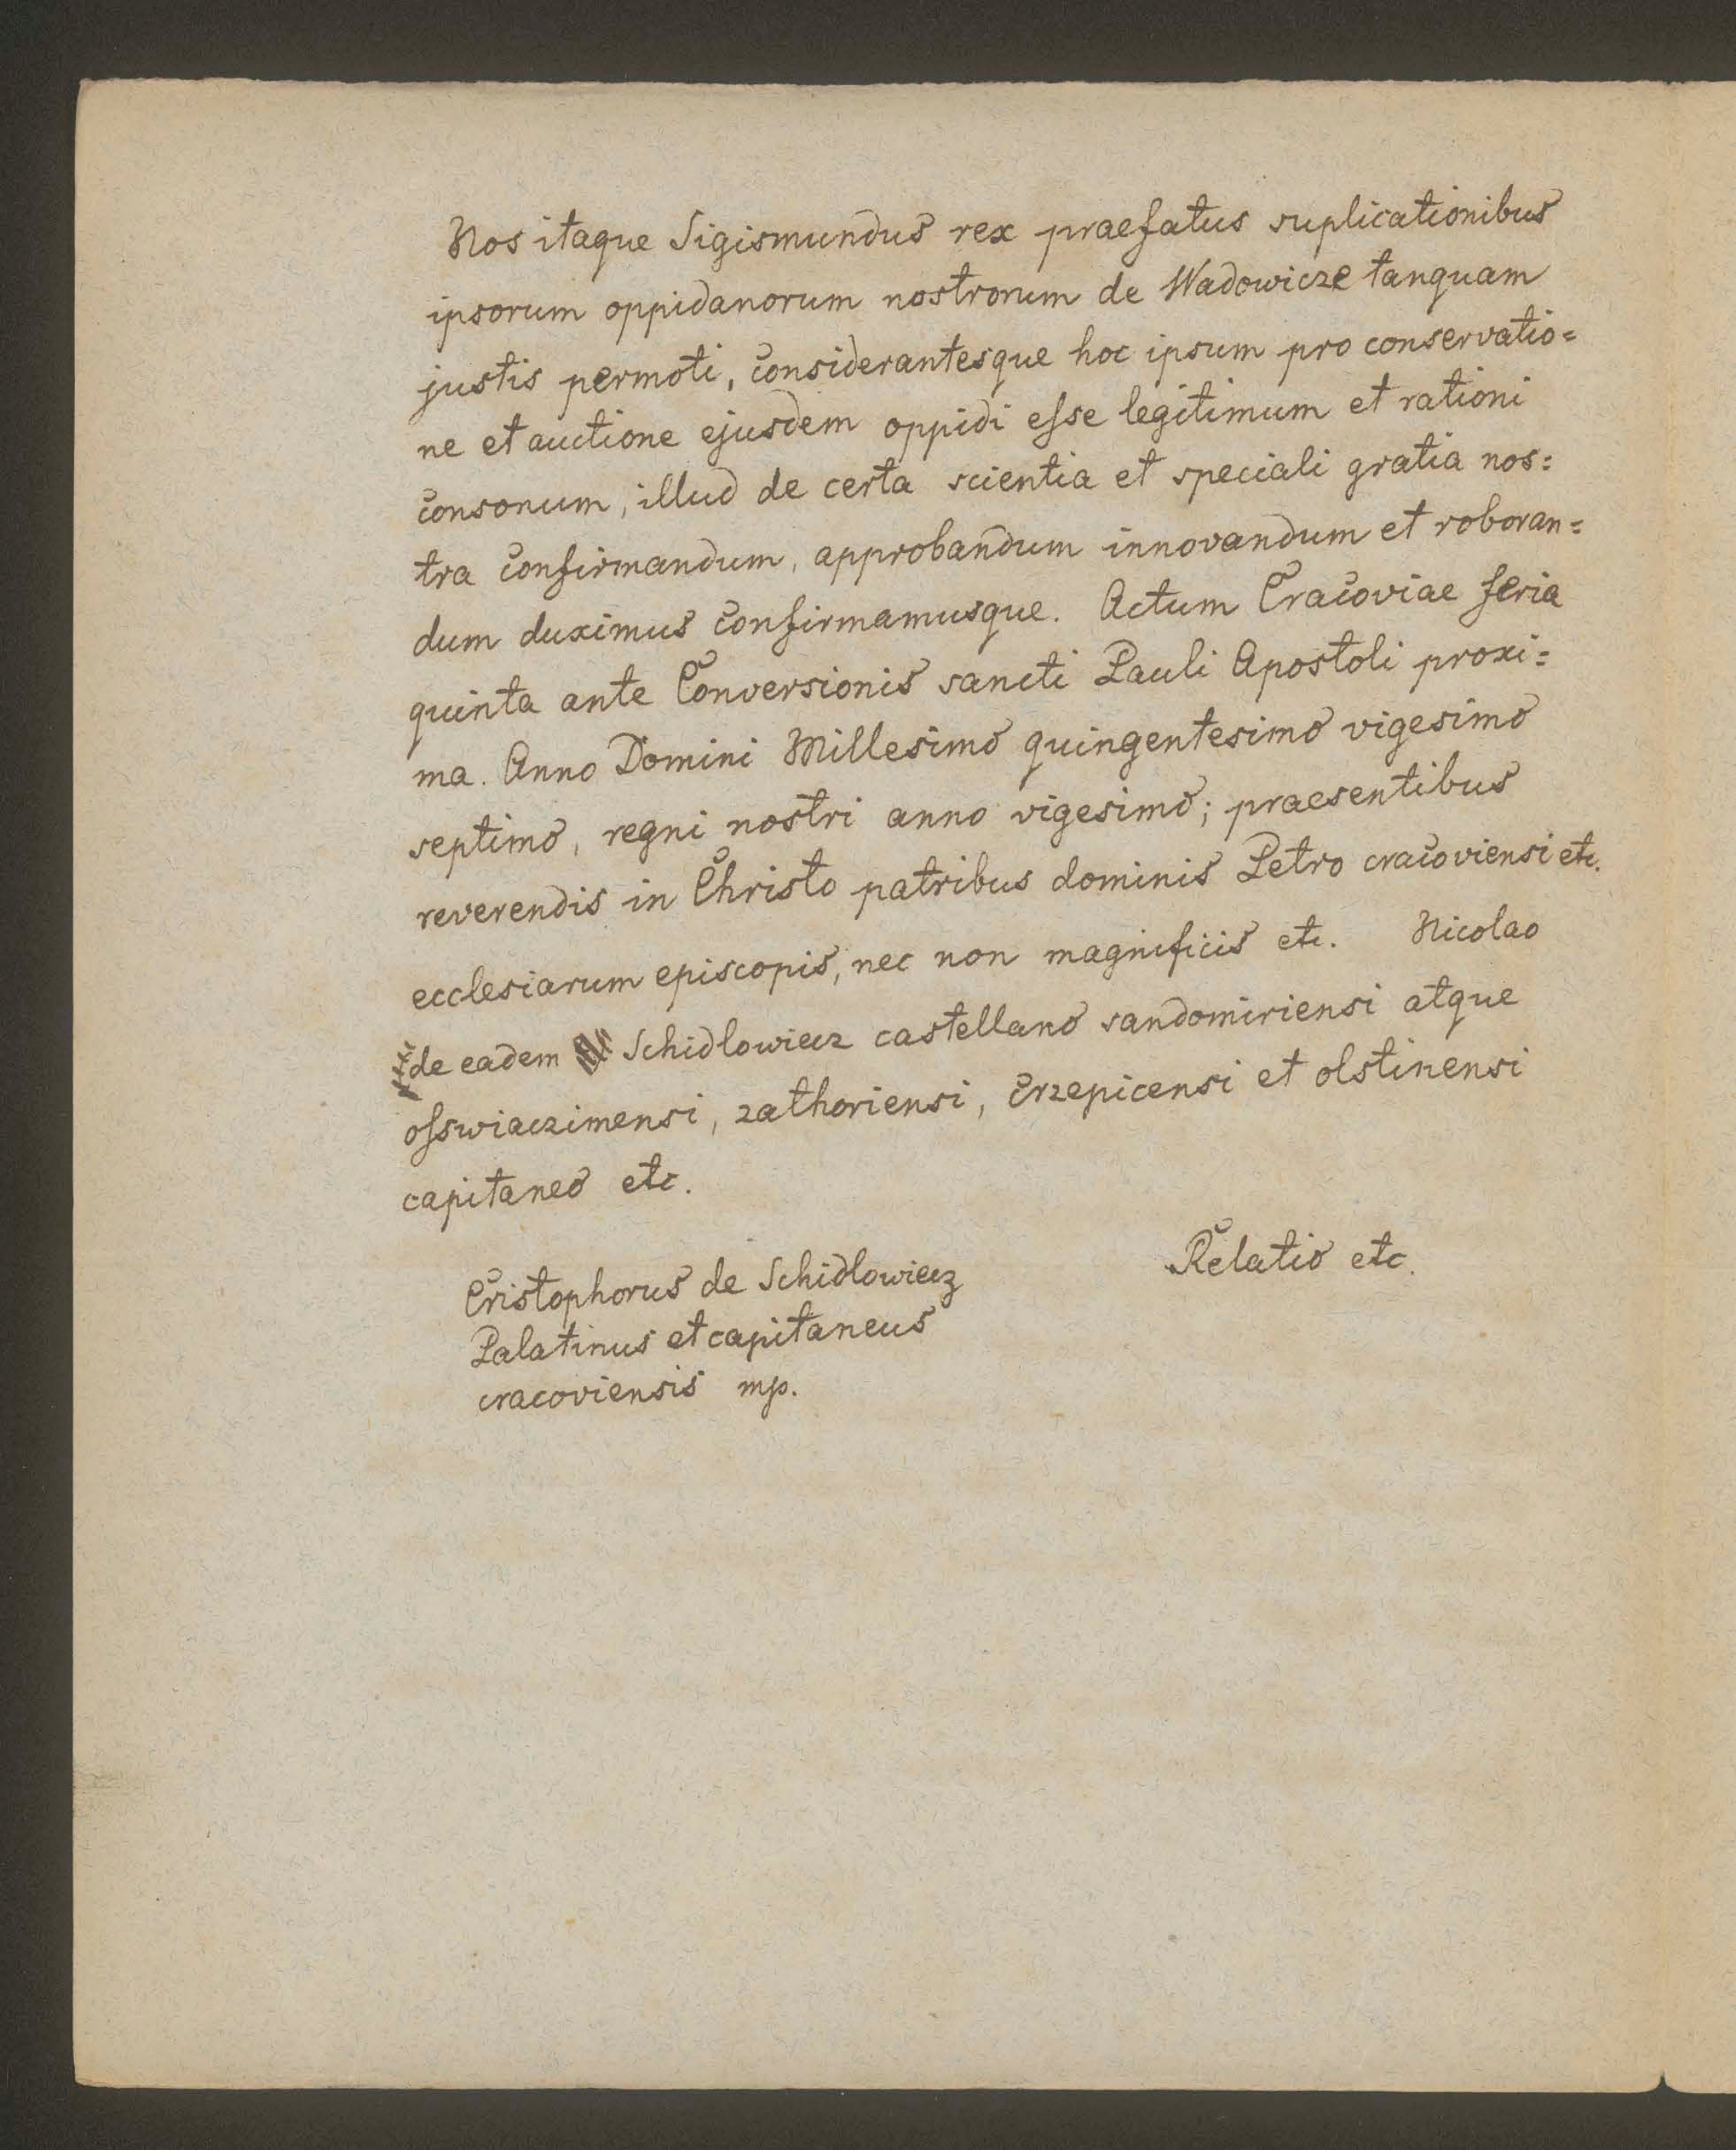 Nos itaque Sigismundus rex praefatus suplicationibus
ipsorum oppidanorum nostrorum de Wadowicze tanquam
justis permoti, considerantesque hoc ipsum pro conservatio=
ne et auctione ejusdem oppidi esse legitimum et rationi
consonum, illud de certa scientia et speciali gratia nos=
tra confirmandum, approbandum innovandum et roboran=
dum duximus confirmamusque. Actum Cracoviae feria
quinta ante Conversionis sancti Pauli Apostoli proxi=
ma. Anno Domini Millesimo quingentesimo vigesimo
septimo, regni nostri anno vigesimo; praesentibus
reverendis in Christo patribus dominis Petro cracoviensi etc.
ecclesiarum episcopis, nec non magnificis etc. Nicolao
de eadem Schidlowiecz castellano sandomiriensi atque
osswiaczimensi, zathoriensi, crzepicensi et olstinensi
capitaneo etc.
Relatio etc.
Cristophorus de Schidlowiecz
Palatinus et capitaneus
cracoviensis mp.